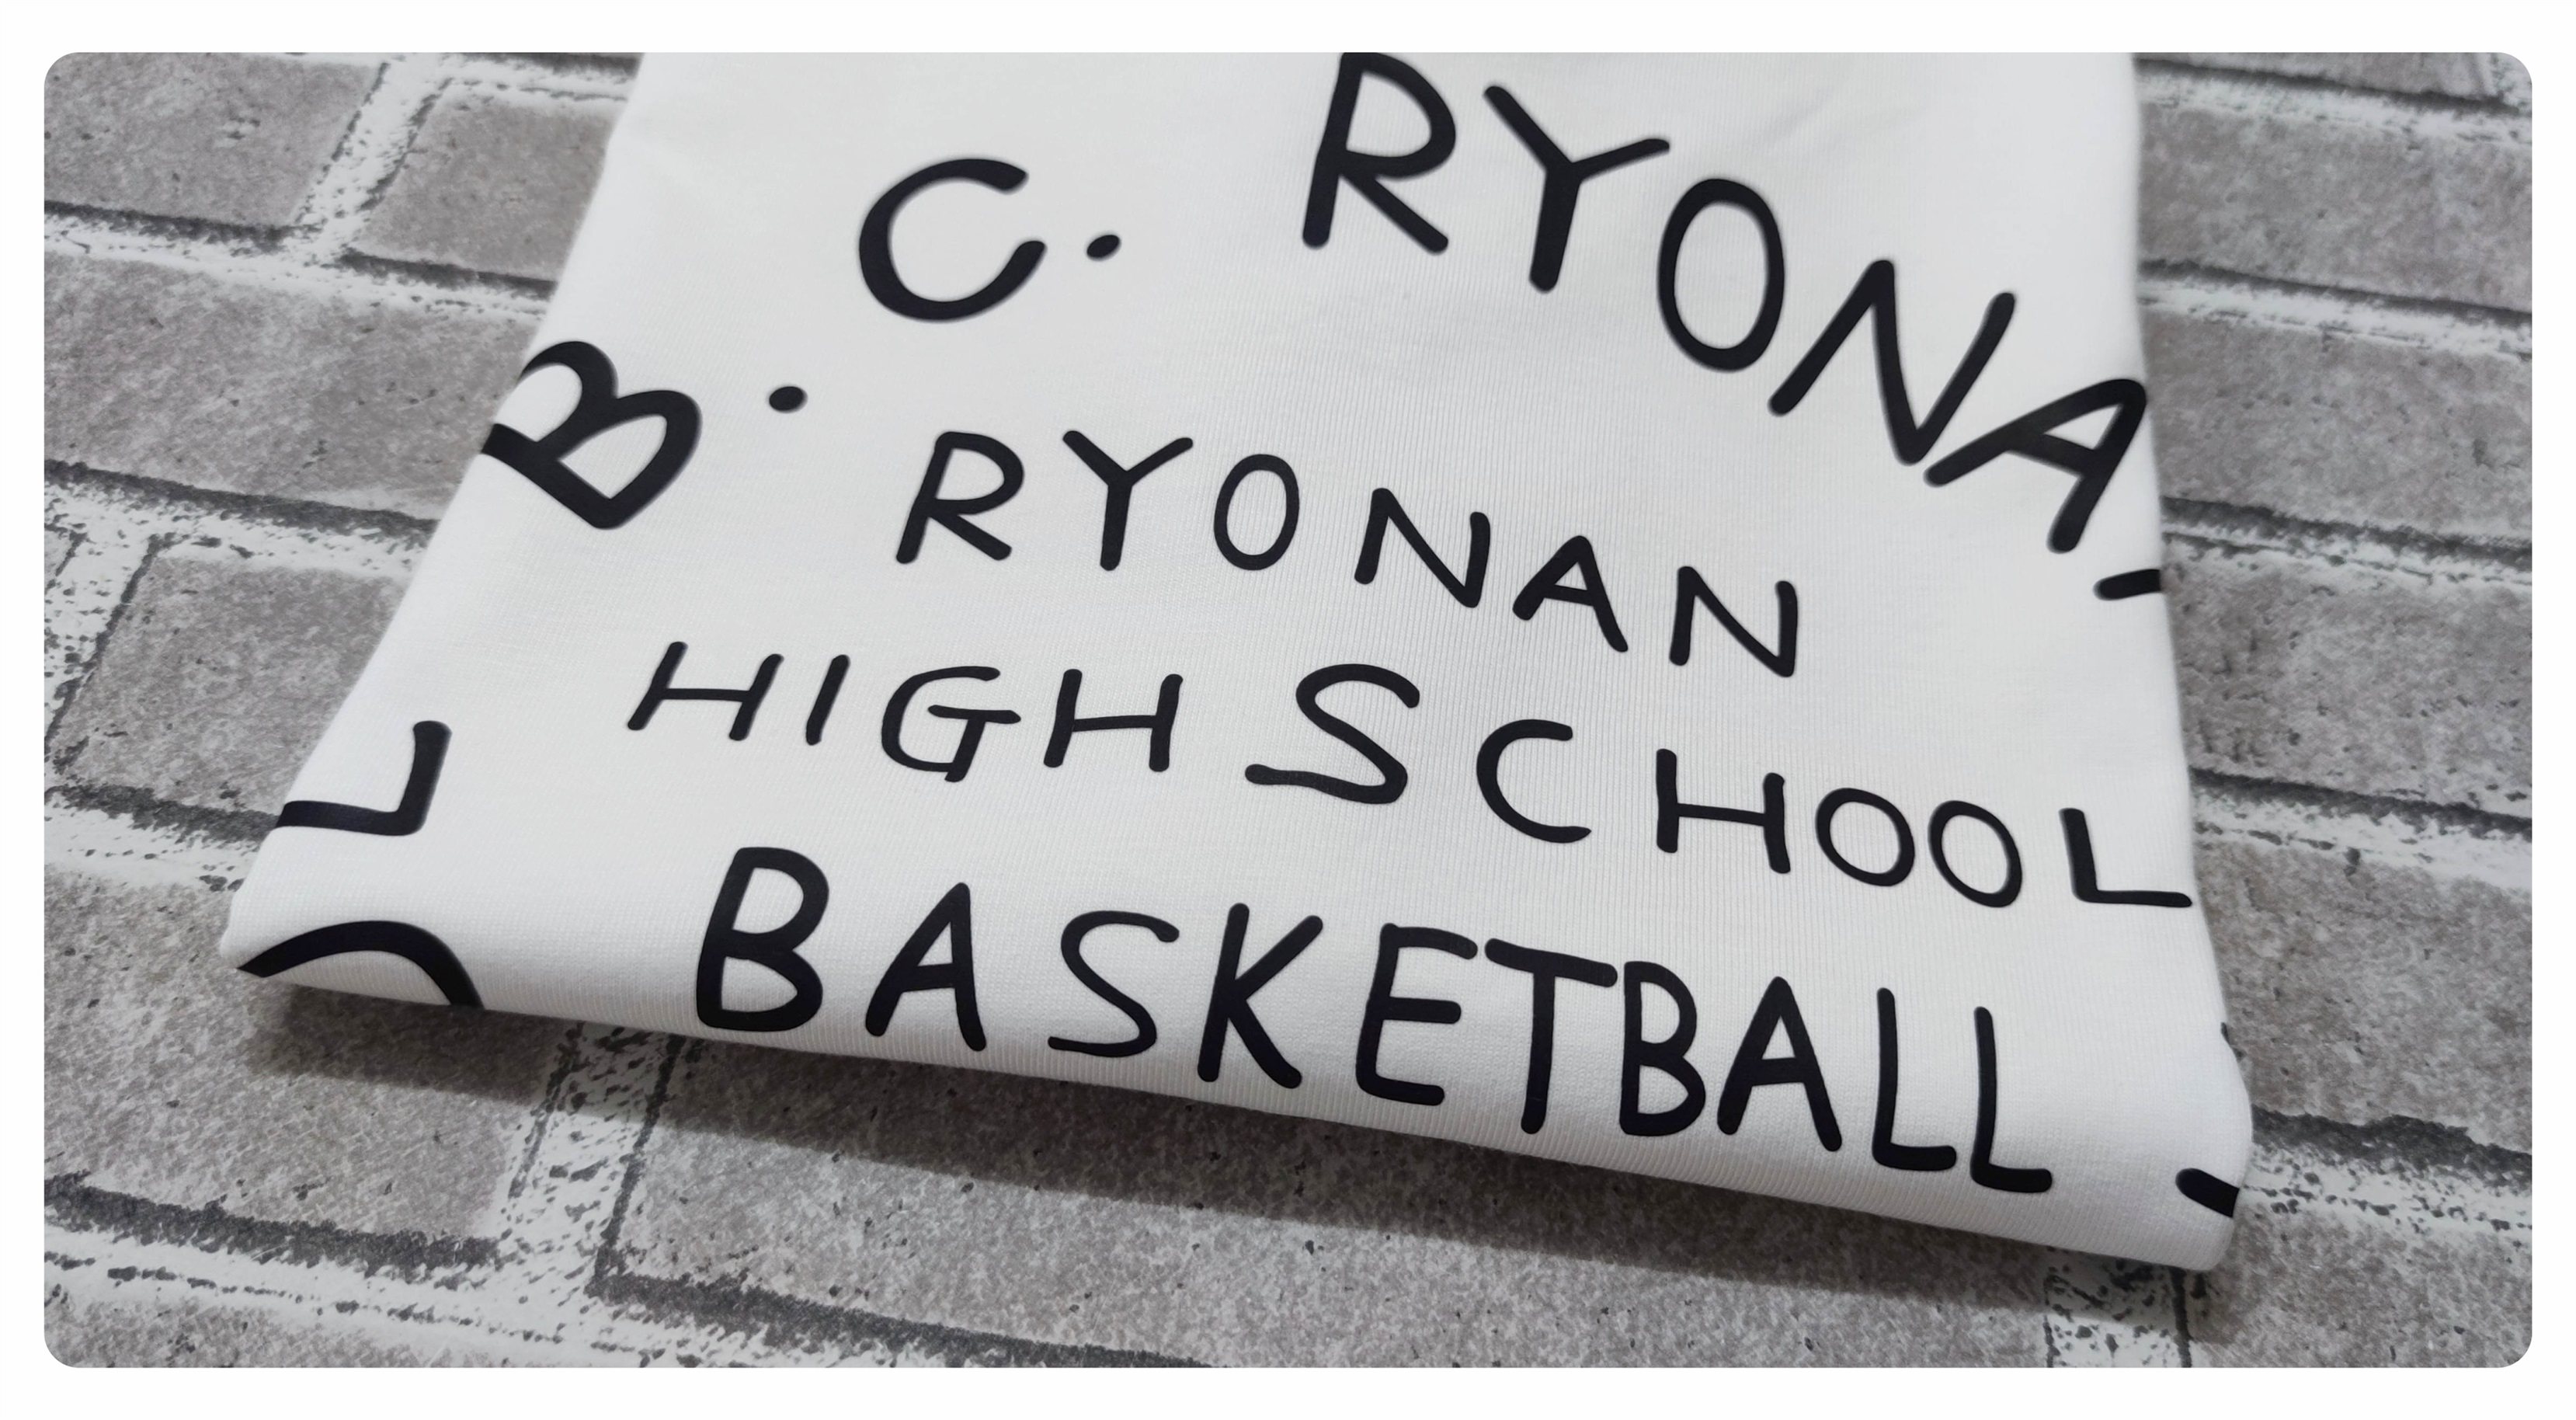 B. C. RYONA
RYONAN
HIGH SCHOOL
BASKETBALL
L